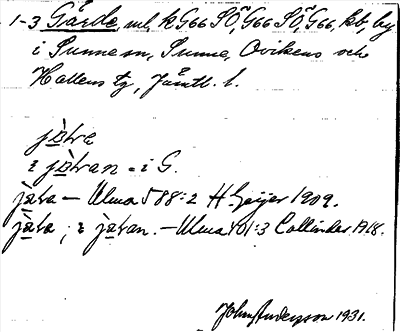 1-3 Gärde, ml, k G66 SÖ, G66 SÖ, G66, kb, by
i Sunne sn, Sunne, Ovikens och
Hallens tg, Jämtl. l.
i G.
— Ulma 588:2 H. Geijer 1909.
— Ulma 101:3 Collinder 1918.
John Andersson 1931.